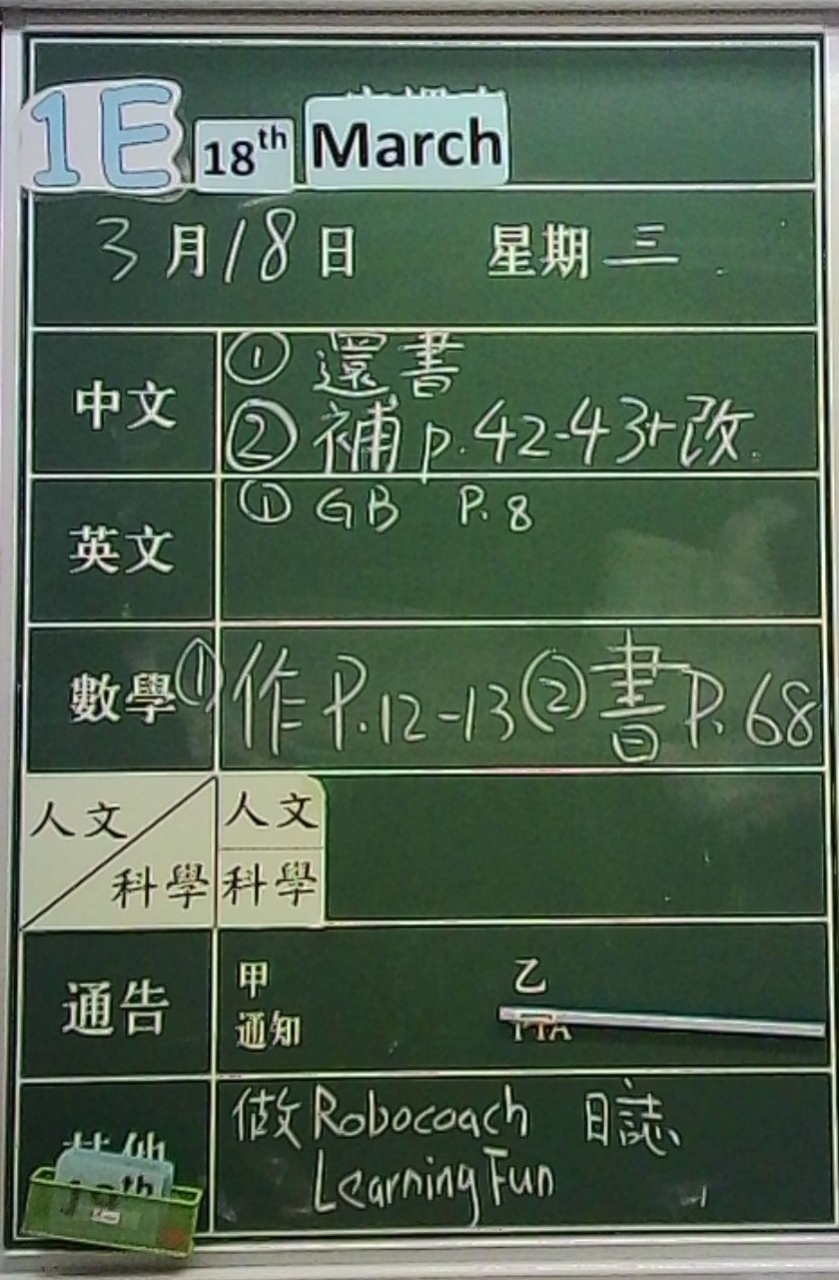 1E 18th March
3月18日 星期三
中文 ① 還書
② 補 p.42-43+改.
英文 ① GB P.8
數學 ① 作 P.12-13 ② 書 P.68
人文 人文
科學 科學
通告 甲 乙
通知 PTA
其他 做 Robocoach 日誌、
Learning Fun